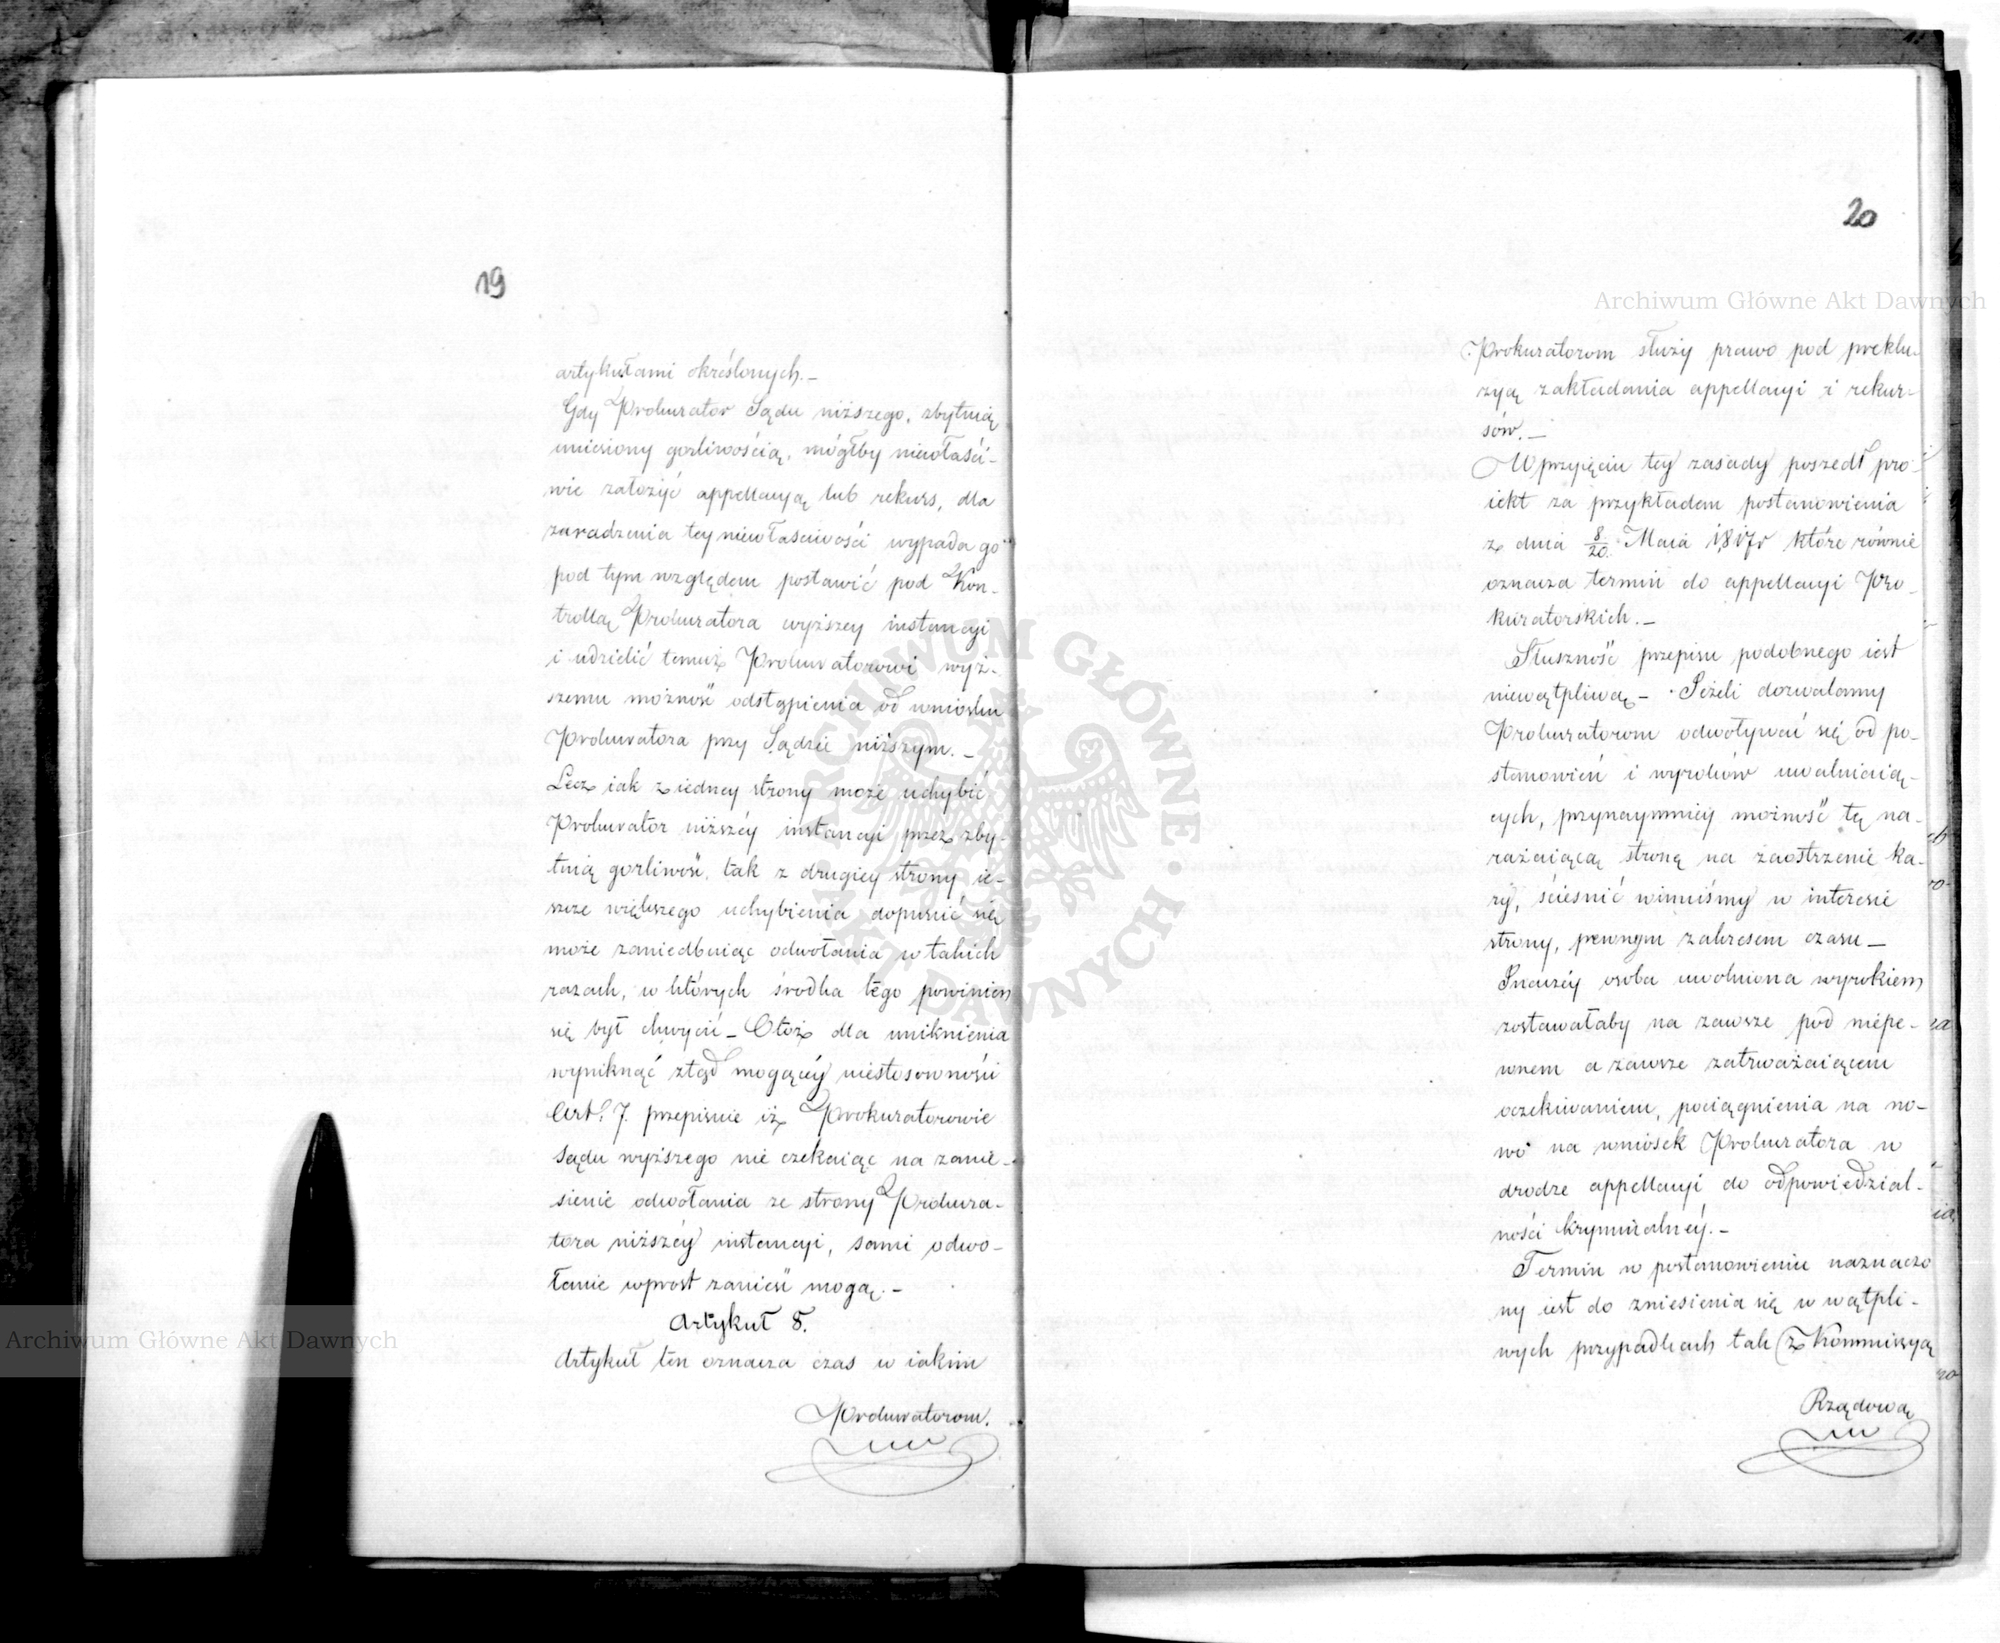 19
artykułami określonych.—
Gdy Prokurator Sądu niższego, zbytnią
uniesiony gorliwością, mógłby niewłaści-
wie założyć appellacyą lub rekurs, dla
zaradzenia tey niewłaściwości wypada go
pod tym względem postawić pod Kon-
trollą Prokuratora wyższey instancyi
i udzielić temuż Prokuratorowi wyż-
szemu możność odstąpienia od wniosku
Prokuratora przy Sądzie niższym.—
Lecz iak z iedney strony może uchybić
Prokurator niższéy instancyi przez zby-
tnią gorliwość, tak z drugiey strony ie-
szcze większego uchybienia dopuścić się
może zaniedbuiąc odwołania w takich
razach, w których środka tego powinien
się był chwycić — Otóż dla uniknienia
wyniknąć ztąd mogącéy niestosowności
Art. 7. przepisuie iż Prokuratorowie
Sądu wyższego nie czekaiąc na zanie-
sienie odwołania ze strony Prokura-
tora niższéy instancyi, sami odwo-
łanie wprost zanieść mogą.—
Artykuł 8.
Artykuł ten oznacza czas w iakim
Prokuratorom.
20
Prokuratorom służy prawo pod preklu-
zyą zakładania appellacyi i rekur-
sów.—
W przyięciu tey zasady poszedł pro-
iekt za przykładem postanowienia
z dnia 8/20. Maia 1817r które równie
oznacza termin do appellacyi Pro-
kuratorskich.—
Słuszność przepisu podobnego iest
niewątpliwą — Ieżeli dozwalamy
Prokuratorom odwoływać się od po-
stanowień i wyroków uwalniaią-
cych, przynaymniey możność tę na-
rażaiącą stronę na zaostrzenie ka-
ry, ścieśnić winniśmy w interesie
strony, pewnym zakresem czasu —
Inaczéy osoba uwolniona wyrokiem
zostawałaby na zawsze pod niepe-
wnem a zawsze zatrważaiącem
oczekiwaniem, pociągnienia na no-
wo na wniosek Prokuratora w
drodze appellacyi do odpowiedzial-
ności kryminalnéy.—
Termin w postanowieniu naznaczo
ny iest do zniesienia się w wątpli-
wych przypadkach tak (z Kommissyą
Rządową
Archiwum Główne Akt Dawnych
Archiwum Główne Akt Dawnych
ARCHIWUM GŁÓWNE AKT DAWNYCH